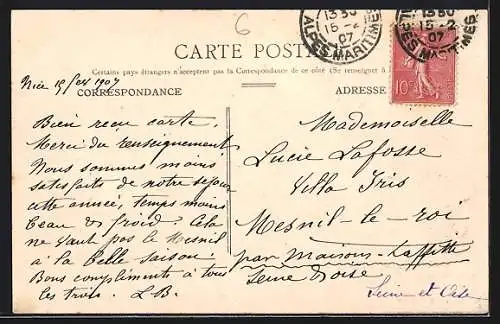 6
1330
15-2
07
ALPES MARITIMES
1330
15-2
07
ALPES MARITIMES
CARTE POSTALE
Certains pays étrangers n'acceptent pas la Correspondance de ce côté (Se renseigner à
CORRESPONDANCE
ADRESSE
10
Nice 15 fev 1907
Bien reçu carte.
Merci du renseignement
Nous sommes moins
satisfaits de notre séjour
cette année, temps moins
beau & froid. Cela
ne vaut pas le Mesnil
à la belle saison.
Bons compliments à tous
les trois. L.B.
Mademoiselle
Lucie Lafosse
Villa Iris
Mesnil-le-roi
par Maisons-Laffitte
Seine Oise
Seine et Oise